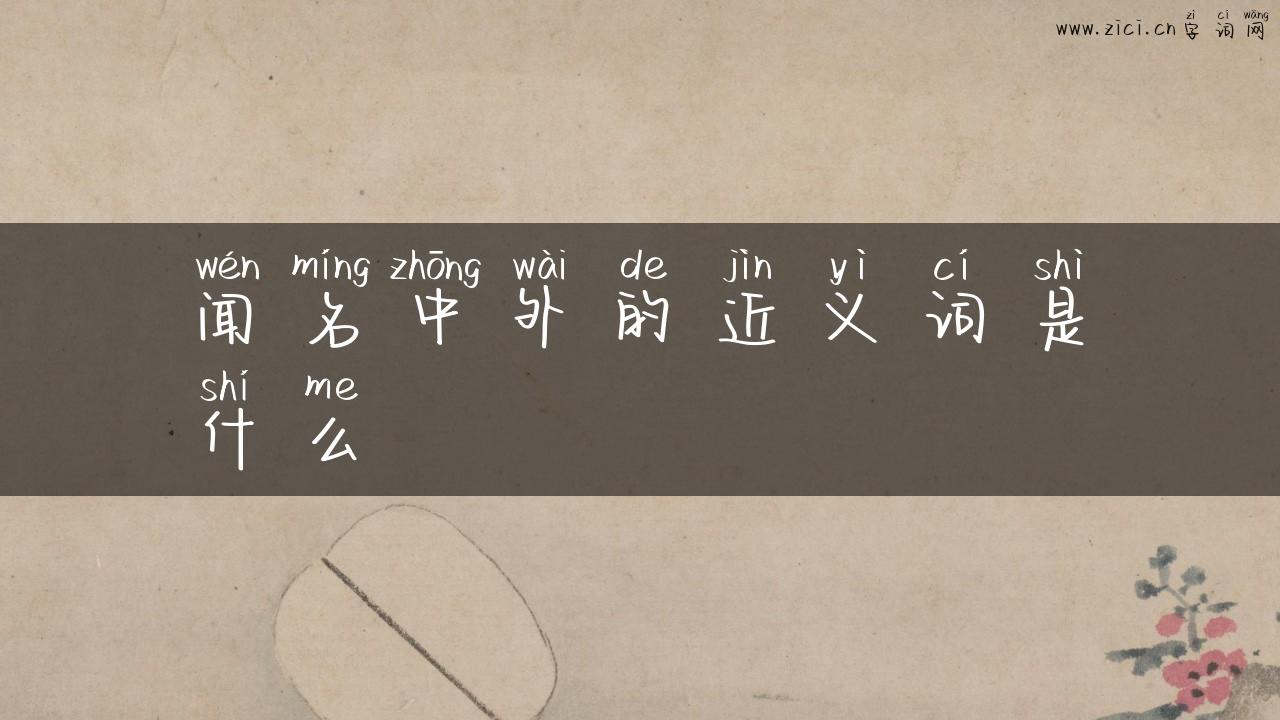 zì cí wǎng
www.zici.cn 字词网
wén míng zhōng wài de jìn yì cí shì
闻名中外的近义词是
shí me
什么